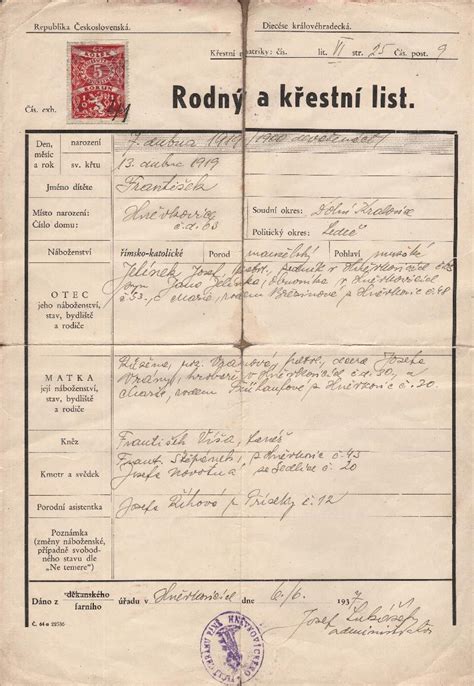 Republika Československá.
Diecése královéhradecká.
Křestní matriky: čís. lit. VI str. 25 Čís. post. 9
KOLEK
5
KORUN
Čís. exh.
Rodný a křestní list.
Den, měsíc a rok
narození 7. dubna 1919 /1900 devatenáct/
sv. křtu 13. dubna 1919
Jméno dítěte František
Místo narození: Hněvkovice
Číslo domu: č. d. 63
Soudní okres: Dolní Kralovice
Politický okres: Ledeč
Náboženství římsko-katolické Porod manželský Pohlaví mužské
OTEC
jeho náboženství,
stav, bydliště
a rodiče
Jelínek Josef, v Hněvkovicích
syn Jana Jelínka, v Hněvkovicích
č. 53 a Marie, rodem Březinové z Hněvkovic č. 48
MATKA
její náboženství,
stav, bydliště
a rodiče
Růžena, roz. Vránová, dcera Josefa
Vrány, v Hněvkovicích č. d. 20, a
Marie, rodem z Hněvkovic č. 20.
Kněz František Víša,
Kmotr a svědek
Frant. Štěpánek, z Hněvkovic č. 43
Josefa Novotná ze Sedlice č. 20
Porodní asistentka Josefa Říhová z Příseky č. 12
Poznámka
(změny náboženské,
případně svobodného
stavu dle
„Ne temere")
Dáno z děkanského
farního úřadu v Hněvkovicích dne 6/6. 1937
Josef
administrátor
Č. 64 a